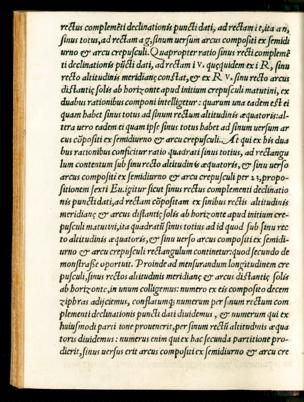 rectus complemēti declinationis puncti dati, ad rectam i t, ita a n,
sinus totus, ad rectam a g, sinum uersum arcus compositi ex semidi
urno & arcu crepusculi. Quapropter ratio sinus recti complemē
ti declinationis pūcti dati, ad rectam i v. quę quidem ex i R, sinu
recto altitudinis meridianę constat, & ex R v. sinu recto arcus
distantię solis ab horizonte apud initium crepusculi matutini, ex
duabus rationibus componi intelligetur: quarum una eadem est ei
quam habet sinus totus ad sinum rectum altitudinis æquatoris: al-
tera uero eadem ei quam ipse sinus totus habet ad sinum uersum ar
cus cōpositi ex semidiurno & arcu crepusculi. At qui ex his dua
bus rationibus conficitur ratio quadrati sinus totius, ad rectangu
lum contentum sub sinu recto altitudinis æquatoris, & sinu uerso
arcus compositi ex semidiurno & arcu crepusculi per 23, propo-
sitionem sexti Eu. igitur sicut sinus rectus complementi declinatio
nis puncti dati, ad rectam cōpositam ex sinibus rectis altitudinis
meridianę & arcus distantię solis ab horizonte apud initium cre-
pusculi matutini, ita quadratū sinus totius ad id quod sub sinu rec
to altitudinis æquatoris, & sinu uerso arcus compositi ex semidi-
urno & arcu crepusculi rectangulum continetur: quod secundo de
monstrasse oportuit. Proinde ad mensurandum longitudinem cre
pusculi, sinus rectos altitudinis meridianę & arcus distantię solis
ab horizonte, in unum colligemus: numero ex eis composito decem
ziphras adijciemus, conflatumq; numerum per sinum rectum com
plementi declinationis puncti dati diuidemus, & numerum qui ex
huiusmodi partitione prouenerit, per sinum rectū altitudinis æqua
toris diuidemus: numerus enim qui ex hac secunda partitione pro-
dierit, sinus uersus erit arcus compositi ex semidiurno & arcu cre